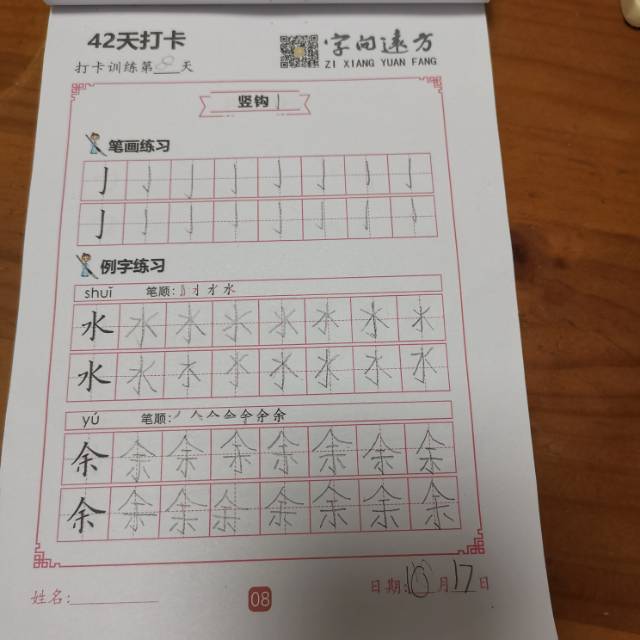 42天打卡
字向遠方
ZI XIANG YUAN FANG
打卡训练第8天
竖钩亅
笔画练习
亅亅亅亅亅亅亅亅
亅亅亅亅亅亅亅亅
例字练习
shuǐ 笔顺:亅 水
水水水水水水水水
水水水水水水水水
yú 笔顺:丿 人 亼 余
余余余余余余余余
余余余余余余余余
姓名:
08
日期:10月17日